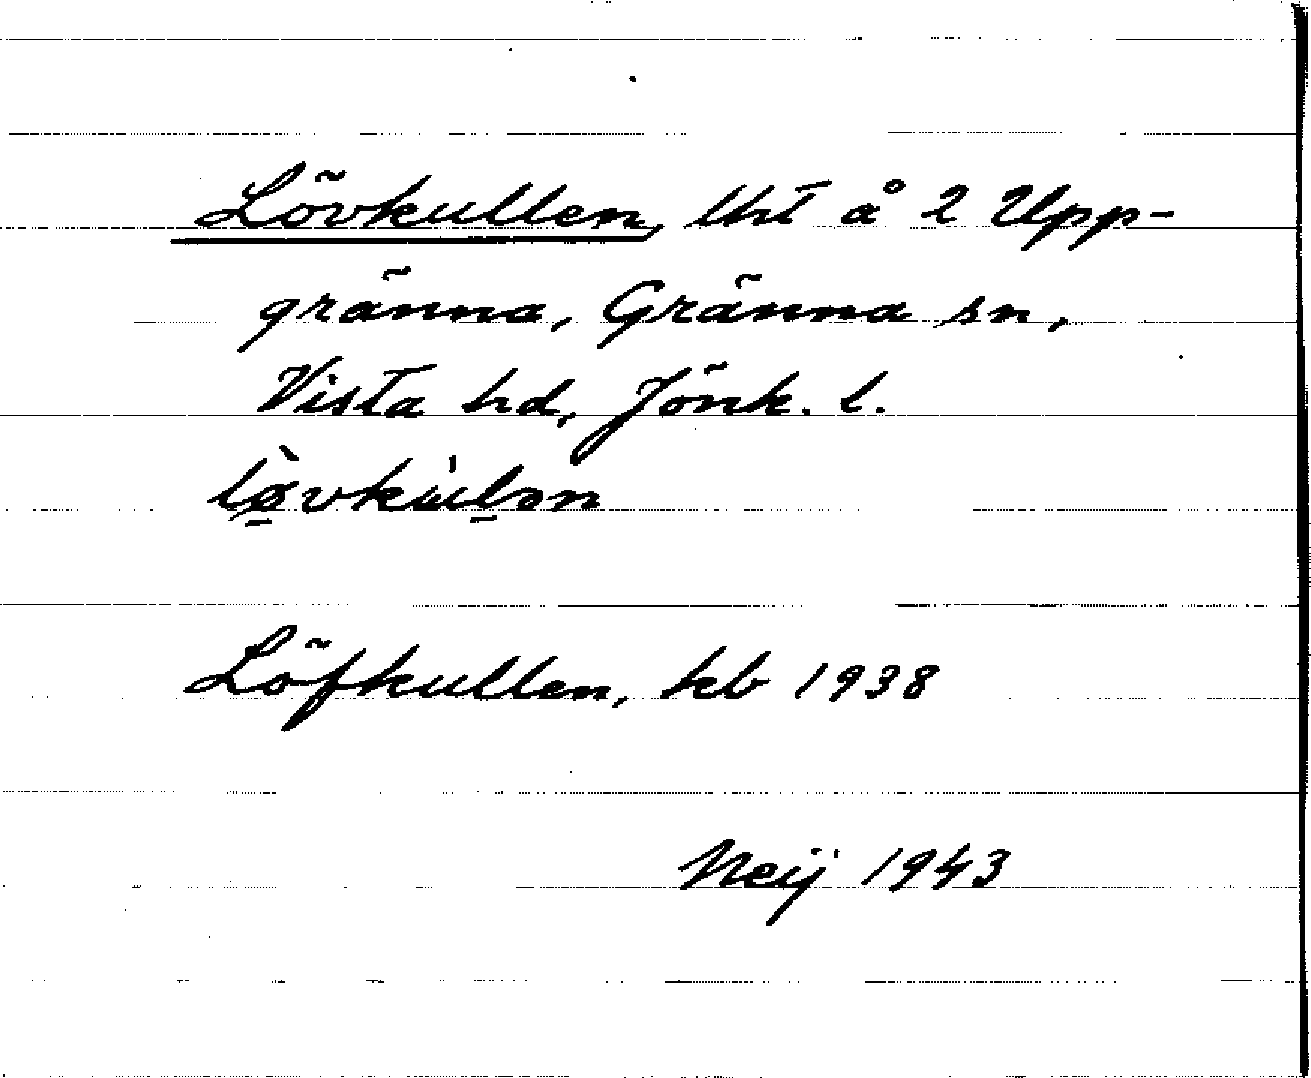 Lövkullen, lht å 2 Upp-
gränna, Gränna sn,
Vista hd, Jönk. l.
Löfkullen, kb 1938
Neij 1943